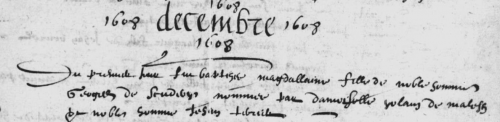 1608
1608 decembre 1608
1608
Du premier jour fut baptisee magdallaine fille de noble homme
Georges de Scudery nommee par damoiselle yolant de
et noble homme Jehan